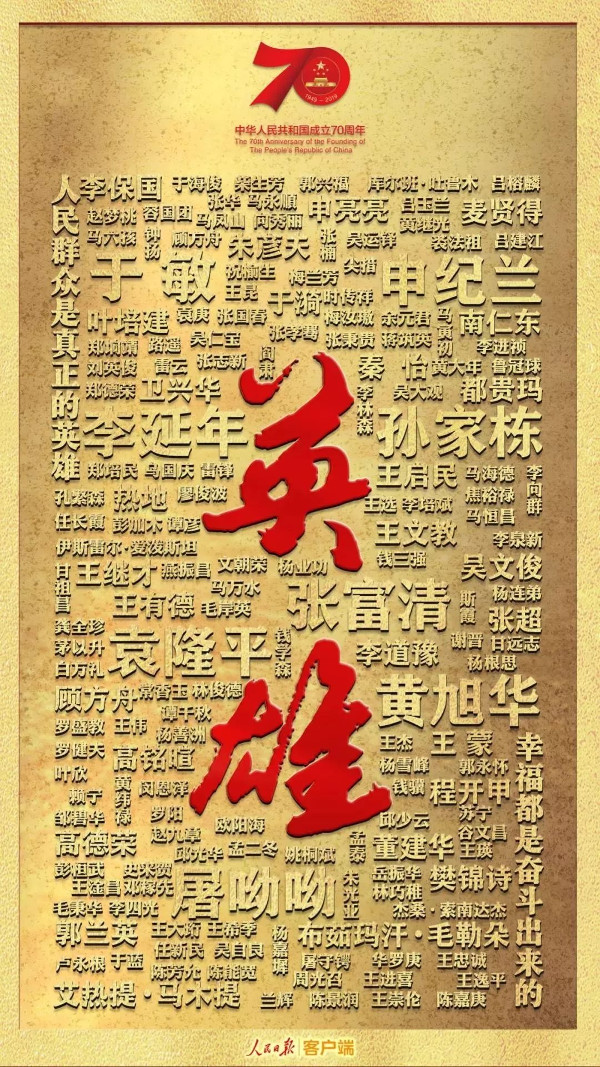 70
1949 - 2019
中华人民共和国成立70周年
The 70th Anniversary of the Founding of
The People's Republic of China
人民群众是真正的英雄
李保国 于海俊 柴生芳 郭兴福 库尔班·吐鲁木 吕榕麟
赵梦桃 容国团 张华 马永顺 申亮亮 吕玉兰 麦贤得
马六孩 钟扬 顾方舟 马凤山 向秀丽 张楠 吴运铎 黄继光 裘法祖 吕建江
朱彦夫
于敏 祝榆生 梅兰芳 尖措 申纪兰
王昆 于漪 时传祥
叶培建 袁庚 张国春 梅汝璈 余元君 马寅初 南仁东
郑垧靖 路遥 吴仁宝 张季鸾 张秉贵 蒋筑英 李进祯
刘英俊 雷云 张志新 阎肃 秦怡 黄大年 鲁冠球
郑德荣 卫兴华 李林森 吴大观 都贵玛
李延年 英 孙家栋
郑培民 马国庆 雷锋 王启民 马海德 李向群
孔繁森 热地 廖俊波 王选 李培斌 焦裕禄
任长霞 彭加木 谭彦 王文教 马恒昌
伊斯雷尔·爱泼斯坦 钱三强 李泉新
甘祖昌 王继才 燕振昌 文朝荣 杨业功 吴文俊
王有德 马万水 毛岸英 张富清 斯霞 杨连弟 张超
龚全珍 袁隆平 钱学森 李道豫 谢晋 甘远志
茅以升 杨根思
白万礼
顾方舟 常香玉 林俊德 黄旭华
罗盛教 王伟 谭千秋 杨善洲 雄 王杰 王蒙
罗健夫 高铭暄 杨雪峰 郭永怀
叶欣 黄纬禄 闵恩泽 钱骥 程开甲
赖宁 罗阳 苏宁
邹碧华 赵九章 欧阳海 邱少云 谷文昌
高德荣 邱光华 孟二冬 姚桐斌 孟泰 董建华 王瑛
彭桓武 史来贺 岳振华 樊锦诗
王淦昌 邓稼先 屠呦呦 朱光亚 林巧稚
毛秉华 李四光 杰桑·索南达杰
郭兰英 王大珩 王希季 杨嘉墀 布茹玛汗·毛勒朵
卢永根 于蓝 任新民 吴自良 屠守锷 华罗庚 王忠诚
陈芳允 陈能宽 周光召 王进喜 王逸平
艾热提·马木提 兰辉 陈景润 王崇伦 陈嘉庚
幸福都是奋斗出来的
人民日报 客户端